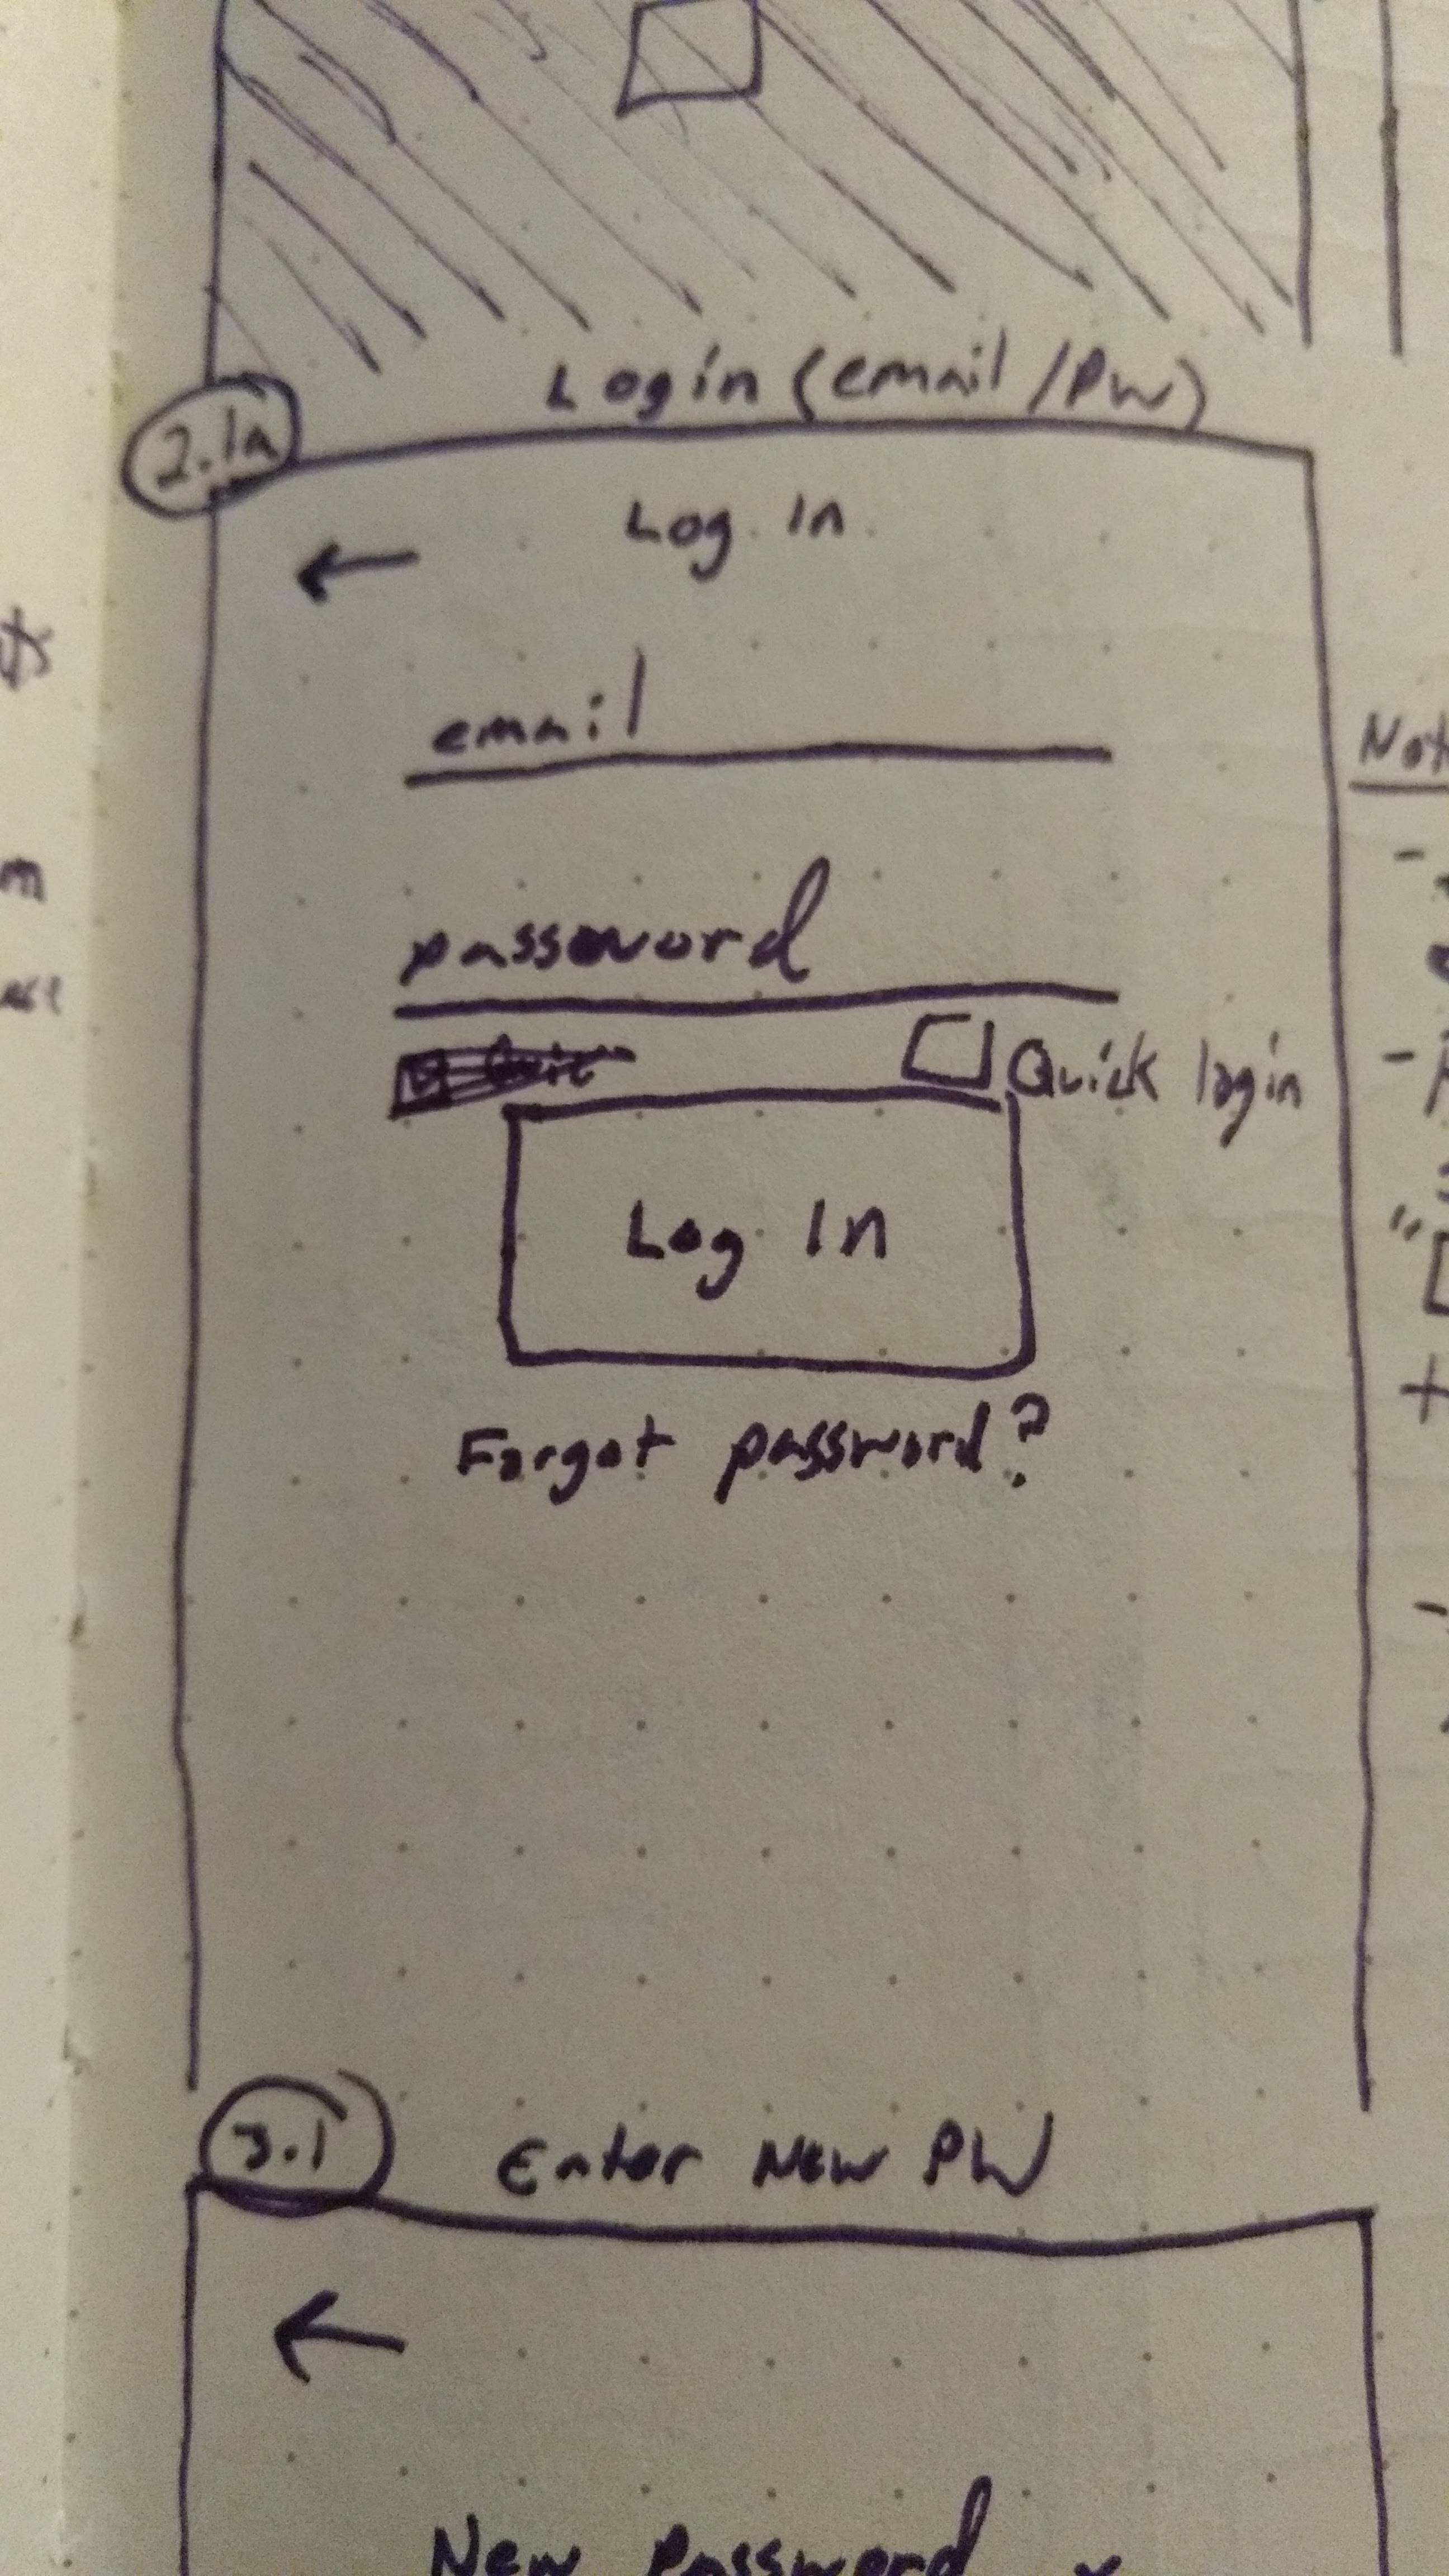 Login (email/PW)
2.1a
Log In
email
password
Quick login
Log In
Forgot password?
3.1
Enter New PW
New Password